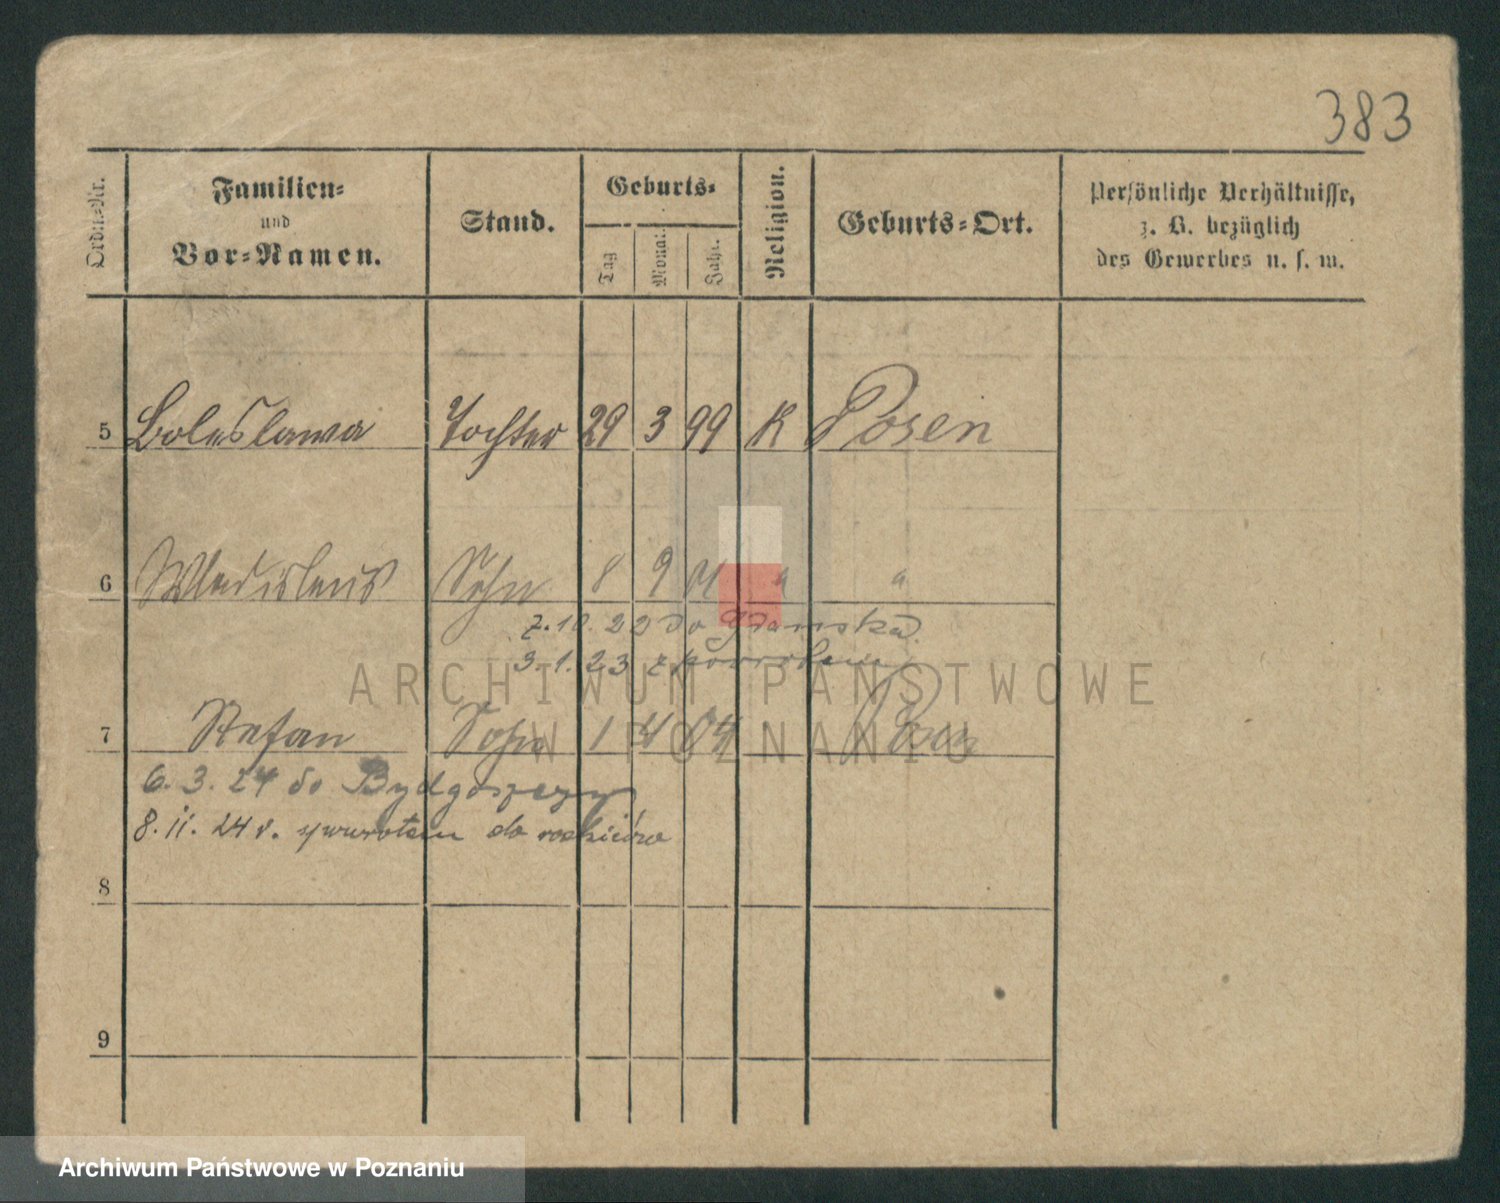 383
Ordin.-Nr.
Familien-
und
Vor-Namen.
Stand.
Geburts-
Tag
Monat.
Jahr.
Religion.
Geburts-Ort.
Persönliche Verhältnisse,
z. B. bezüglich
des Gewerbes u. s. w.
5 Boleslawa Tochter 29 3 99 K Posen
6 Wladislaus Sohn 8 9 01 " "
7.10.22 do Gdańska
3.1.23 z powrotem
7 Stefan Sohn 1 4 04 Posen
6.3.24 do Bydgoszczy
8.11.24 r. z powrotem do rodziców
8
9
ARCHIWUM PAŃSTWOWE
W POZNANIU
Archiwum Państwowe w Poznaniu